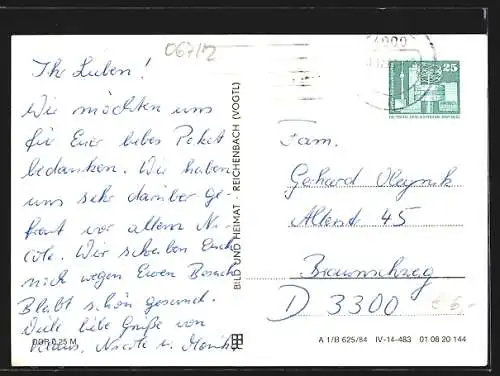 067/12
Ihr Lieben!
Wir möchten uns
für Euer liebes Paket
bedanken. Wir haben
uns sehr darüber ge-
freut vor allem Ni-
cole. Wir schreiben Euch
noch wegen Euren Besuch
Bleibt schön gesund.
Viele liebe Grüße von
Nicole u. Monika
DDR 0,25 M
BILD UND HEIMAT · REICHENBACH (VOGTL)
25
Fam.
Gerhard Oleynik
Alterst. 45
Braunschweig
D 3300
€ 6,-
A 1/B 625/84 IV-14-483 01 08 20 144